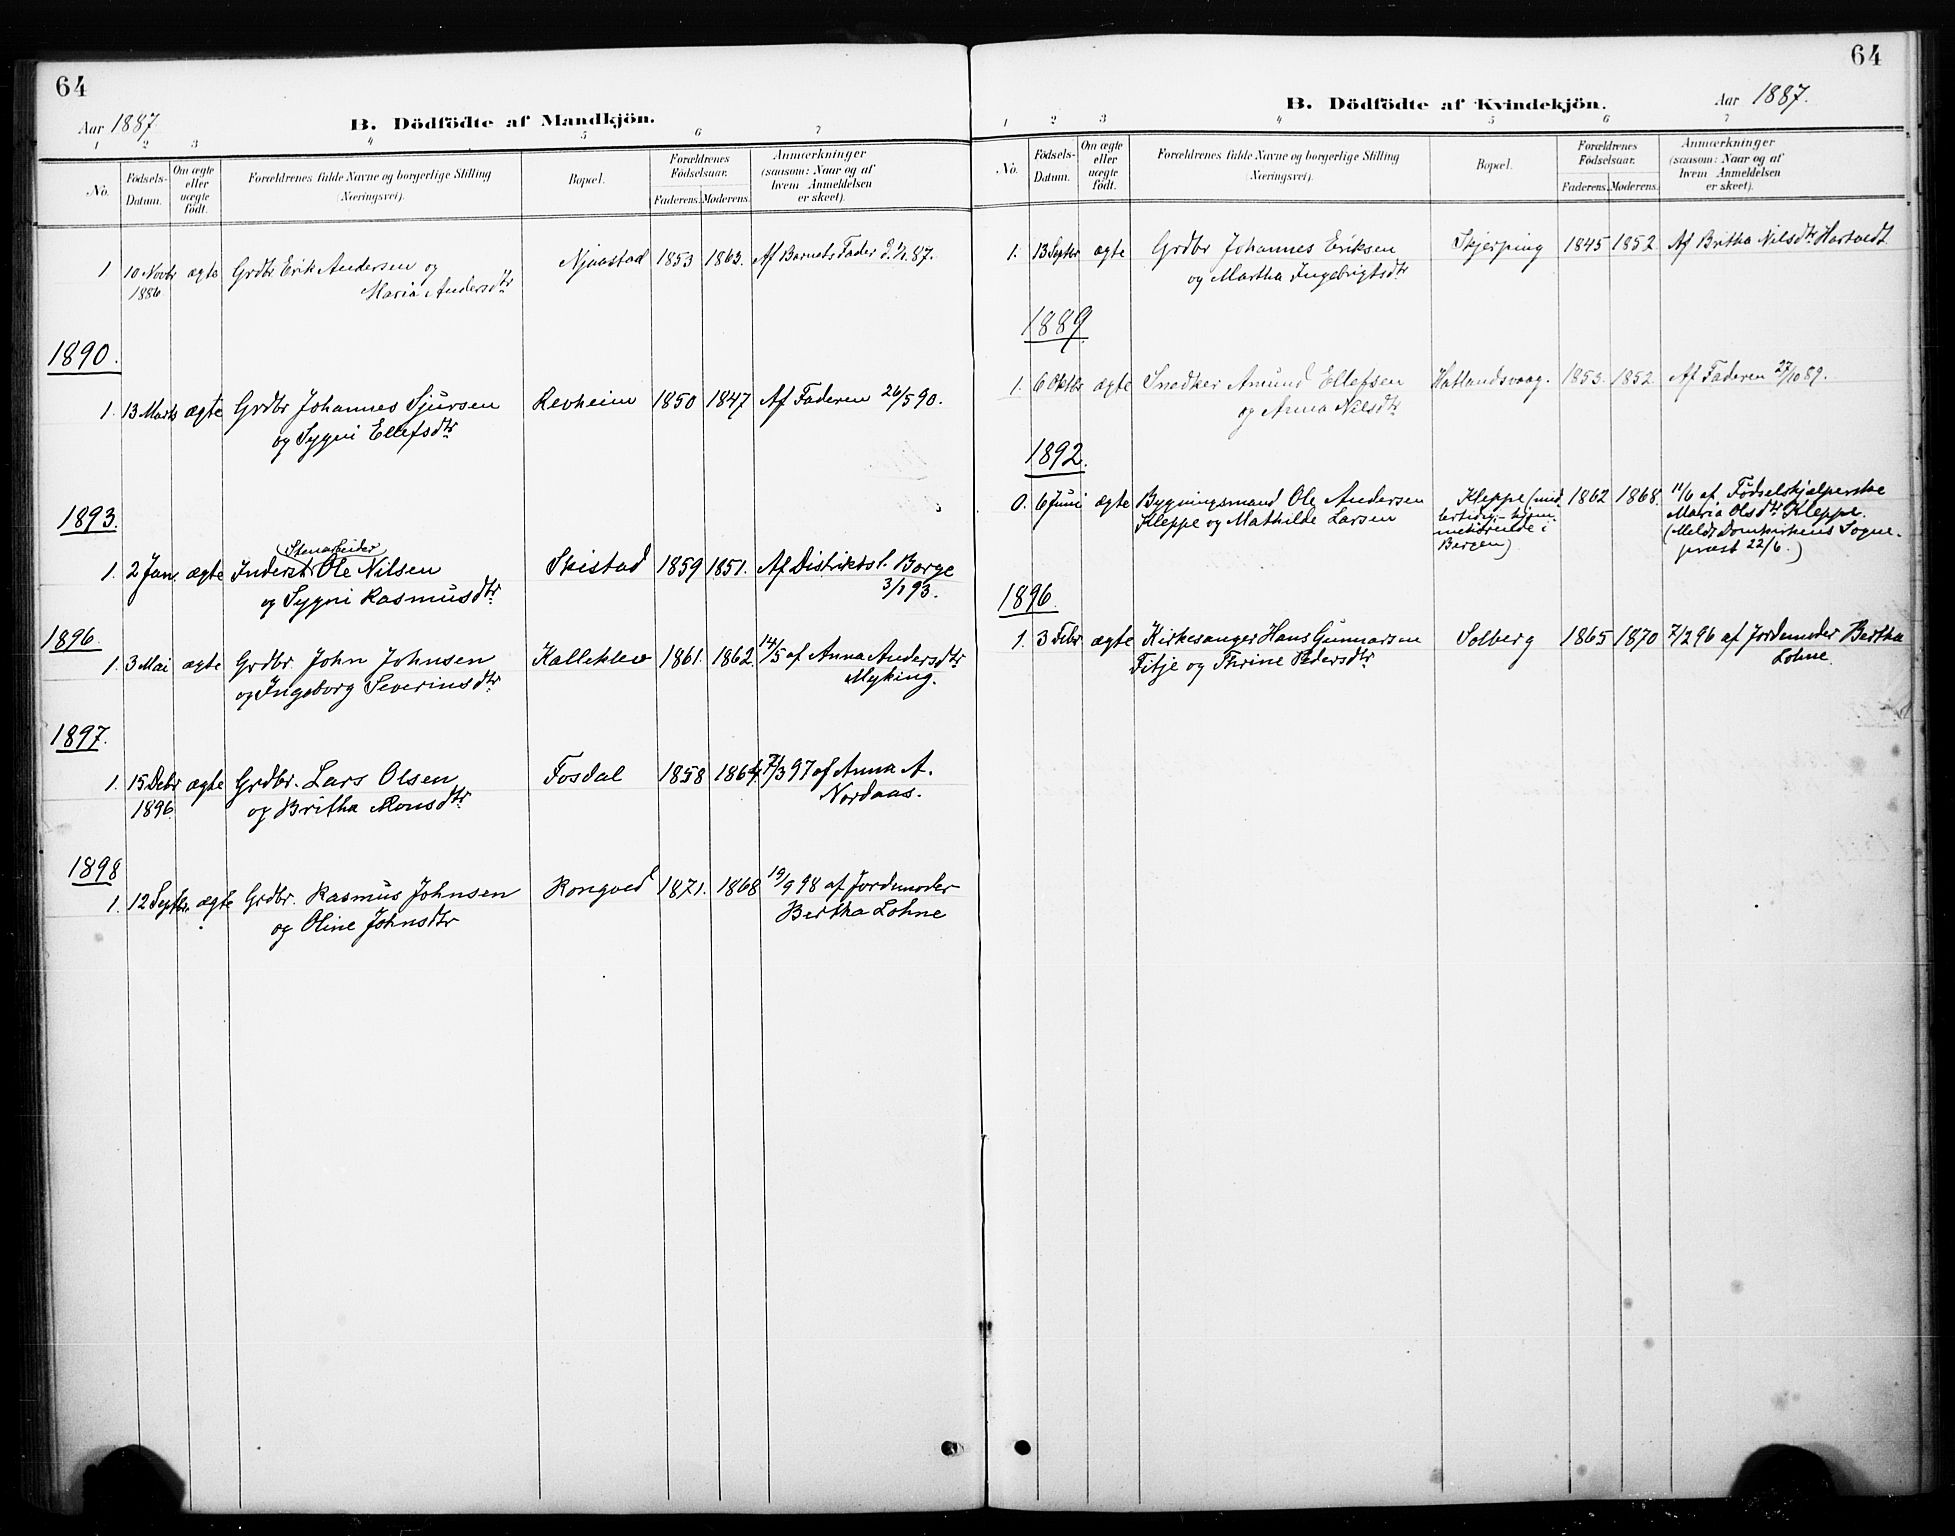 64
Aar 1887.
B. Dödfödte af Mandkjön.
1 2 3 4 5 6 7
No.
Födsels-
Datum.
Om ægte
eller
uægte
født.
Forældrenes fulde Navne og borgerlige Stilling
(Næringsvei).
Bopæl.
Forældrenes
Fødselsaar.
Faderens. Moderens.
Anmærkninger
(saasom: Naar og af
hvem Anmeldelsen
er skeet).
1 10 Novbr ægte Grdbr Erik Andersen og Njaastad 1853 1863. Af Barnets Fader
1886 Maria Andersdtr
1890.
1. 13 Marts ægte Grdbr Johannes Sjursen Revheim 1850 1847 Af Faderen 26/5 90.
og Sygni Ellefsdtr
1893.
(Stenarbeider)
1. 2 Jan. ægte Inderst Ole Nilsen Skistad 1859 1851. Af Distriktsl. Borge
og Sygni Rasmusdtr 3/1 93.
1896.
1. 3 Mai ægte Grdbr. John Johnsen Kalleklev 1861. 1862. 14/5 af Anna Andersdtr
og Ingeborg Severinsdtr Myking.
1897.
1. 15 Debr ægte Grdbr. Lars Olsen Fosdal 1858 1864 7/3 97 af Anna A.
1896. og Britha Monsdtr Nordaas.
1898
1. 12 Septbr. ægte Grdbr. Rasmus Johnsen Rongved 1871. 1868 19/9 98 af Jordemoder
og Oline Johnsdtr Bertha Lohne
64
B. Dödfödte af Kvindekjön.
Aar 1887.
1 2 3 4 5 6 7
No.
Födsels-
Datum.
Om ægte
eller
uægte
født.
Forældrenes fulde Navne og borgerlige Stilling
(Næringsvei).
Bopæl.
Forældrenes
Födselsaar.
Faderens. Moderens.
Anmærkninger
(saasom: Naar og af
hvem Anmeldelsen
er skeet).
1. 13 Septbr ægte Grdbr Johannes Eriksen Skjerping 1845 1852 Af Britha Nilsdtr Hartvedt
og Martha Ingebrigtsdtr
1889.
1. 6 Oktbr ægte Snedker Amund Ellefsen Hatlandsvaag. 1853. 1852. Af Faderen 27/10 89.
og Anna Nilsdtr
1892.
0. 6 Juni ægte Bygningsmand Ole Andersen Kleppe (mid- 1862 1868. 11/6 af Fødselshjælperske
Kleppe og Mathilde Larsen lertidig hjem- Maria Olsdtr Kleppe.
mehørende i (Meldt Domkirkens Sogne-
Bergen) præst 22/6.)
1896.
1. 3 Febr ægte Kirkesanger Hans Gunnarsen Solberg 1865 1870 7/2 96 af Jordemoder Bertha
Titje og Thrine Pedersdtr Lohne.